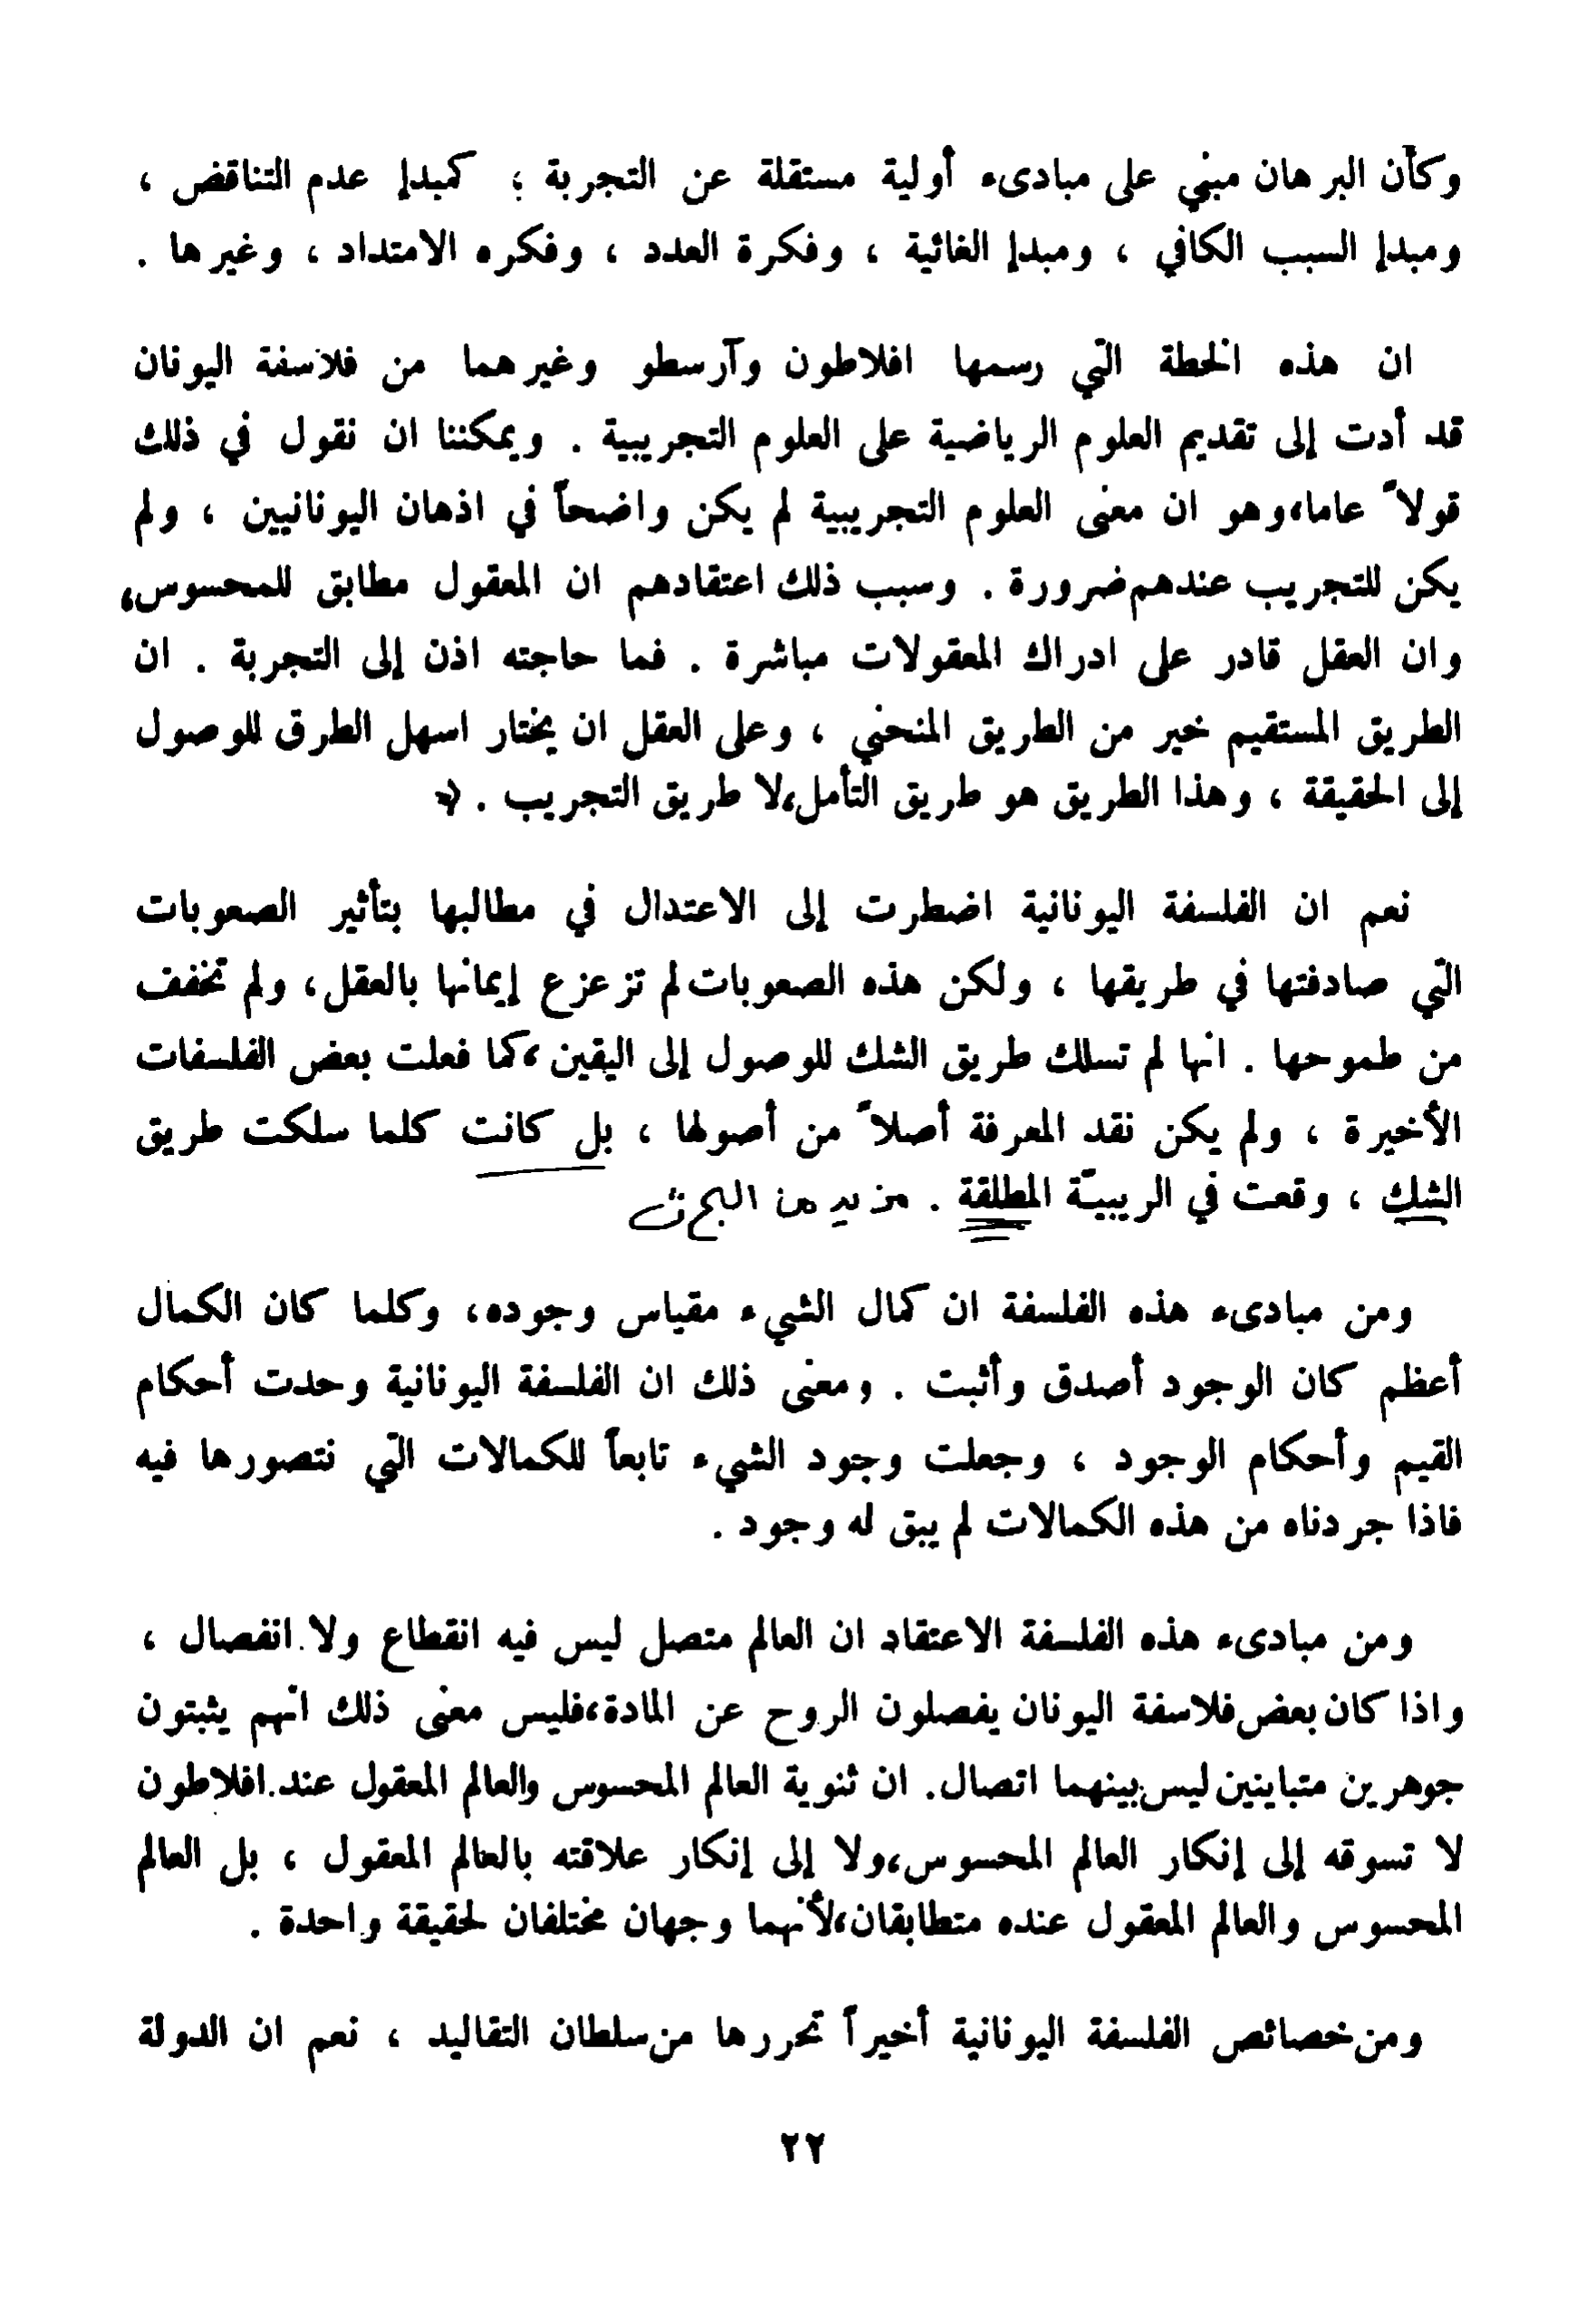 وكأن البرهان مبني على مبادىء أولية مستقلة عن التجربة ؛ كمبدإ عدم التناقض ،
ومبدإ السبب الكافي ، ومبدإ الغائية ، وفكرة العدد ، وفكره الامتداد ، وغيرها .
ان هذه الخطة التي رسمها افلاطون وآرسطو وغيرهما من فلاسفة اليونان
قد أدت إلى تقديم العلوم الرياضية على العلوم التجريبية . ويمكننا ان نقول في ذلك
قولاً عاما،وهو ان معنى العلوم التجريبية لم يكن واضحاً في اذهان اليونانيين ، ولم
يكن للتجريب عندهم ضرورة . وسبب ذلك اعتقادهم ان المعقول مطابق للمحسوس،
وان العقل قادر على ادراك المعقولات مباشرة . فما حاجته اذن إلى التجربة . ان
الطريق المستقيم خير من الطريق المنحني ، وعلى العقل ان يختار اسهل الطرق للوصول
إلى الحقيقة ، وهذا الطريق هو طريق التأمل،لا طريق التجريب .
نعم ان الفلسفة اليونانية اضطرت إلى الاعتدال في مطالبها بتأثير الصعوبات
التي صادفتها في طريقها ، ولكن هذه الصعوبات لم تزعزع إيمانها بالعقل، ولم تخفف
من طموحها . انها لم تسلك طريق الشك للوصول إلى اليقين ،كما فعلت بعض الفلسفات
الأخيرة ، ولم يكن نقد المعرفة أصلاً من أصولها ، بل كانت كلما سلكت طريق
الشك ، وقعت في الريبيّة المطلقة . مزيد من البحث
ومن مبادىء هذه الفلسفة ان كمال الشيء مقياس وجوده، وكلما كان الكمال
أعظم كان الوجود أصدق وأثبت . ومعنى ذلك ان الفلسفة اليونانية وحدت أحكام
القيم وأحكام الوجود ، وجعلت وجود الشيء تابعاً للكمالات التي نتصورها فيه
فاذا جردناه من هذه الكمالات لم يبق له وجود .
ومن مبادىء هذه الفلسفة الاعتقاد ان العالم متصل ليس فيه انقطاع ولا انفصال ،
واذا كان بعض فلاسفة اليونان يفصلون الروح عن المادة،فليس معنى ذلك انهم يثبتون
جوهرين متباينين ليس بينهما اتصال. ان ثنوية العالم المحسوس والعالم المعقول عند افلاطون
لا تسوقه إلى إنكار العالم المحسوس،ولا إلى إنكار علاقته بالعالم المعقول ، بل العالم
المحسوس والعالم المعقول عنده متطابقان،لأنهما وجهان مختلفان لحقيقة واحدة .
ومن خصائص الفلسفة اليونانية أخيراً تحررها من سلطان التقاليد ، نعم ان الدولة
٢٢